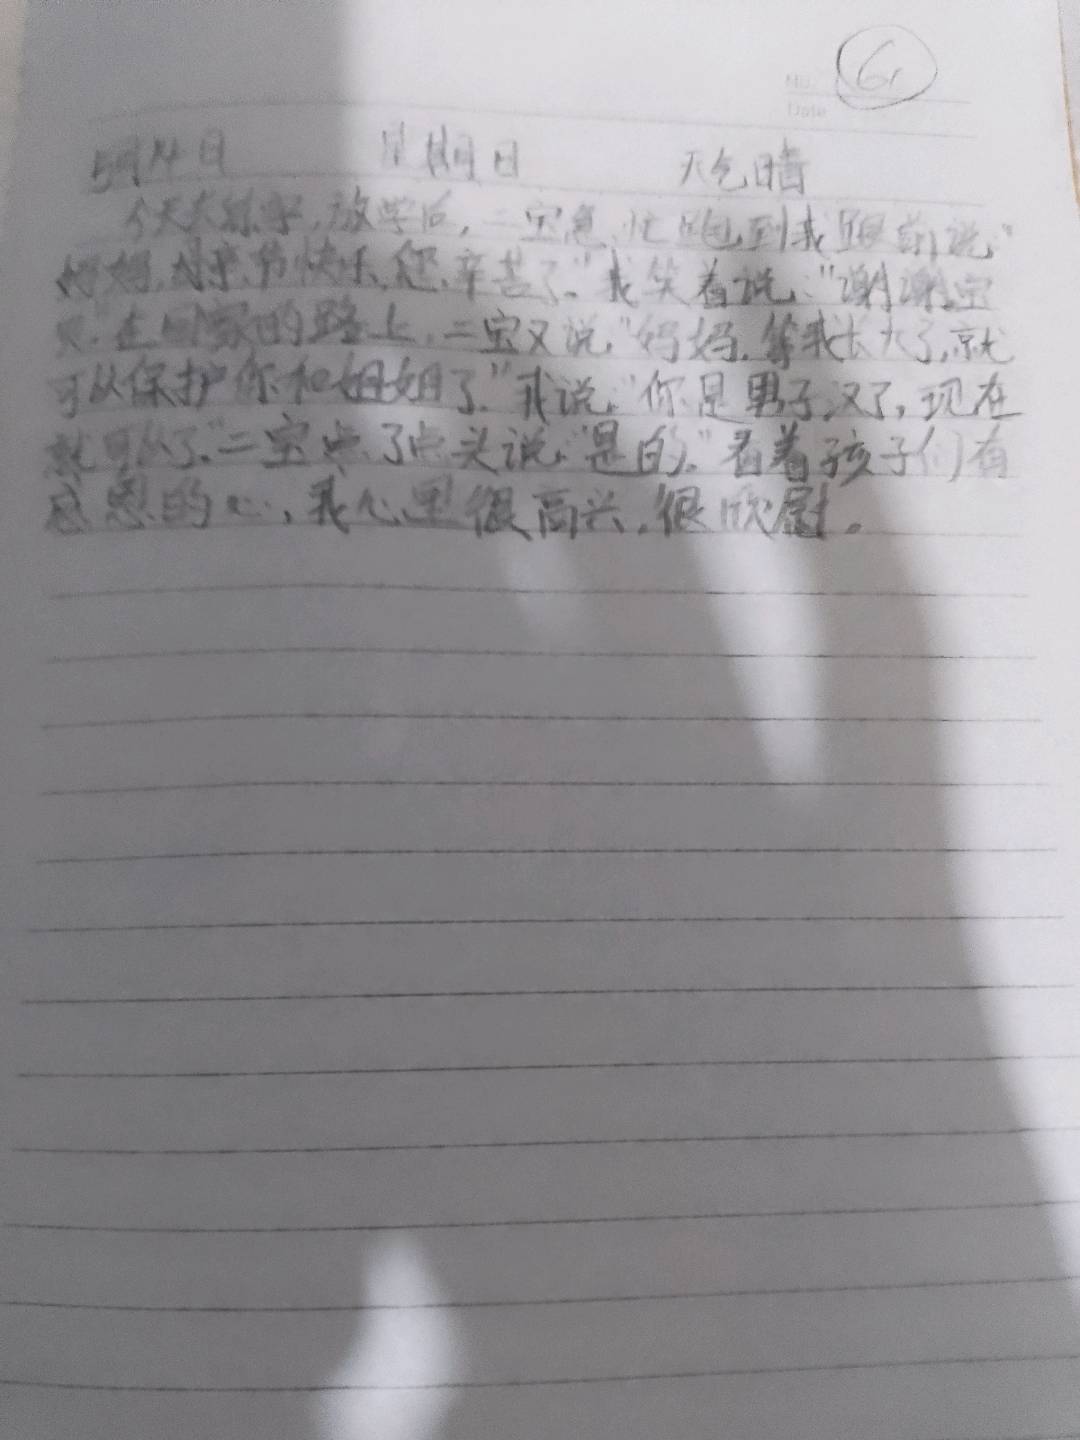 6
No.
Date
5月14日 星期日 天气晴
今天大练字,放学后,二宝急忙跑到我跟前说:"
妈妈,母亲节快乐,您辛苦了."我笑着说:"谢谢宝
贝."在回家的路上,二宝又说,"妈妈,等我长大了,就
可以保护你和姐姐了."我说:"你是男子汉了,现在
就可以了."二宝点了点头说:"是的."看着孩子们有
感恩的心,我心里很高兴,很欣慰。